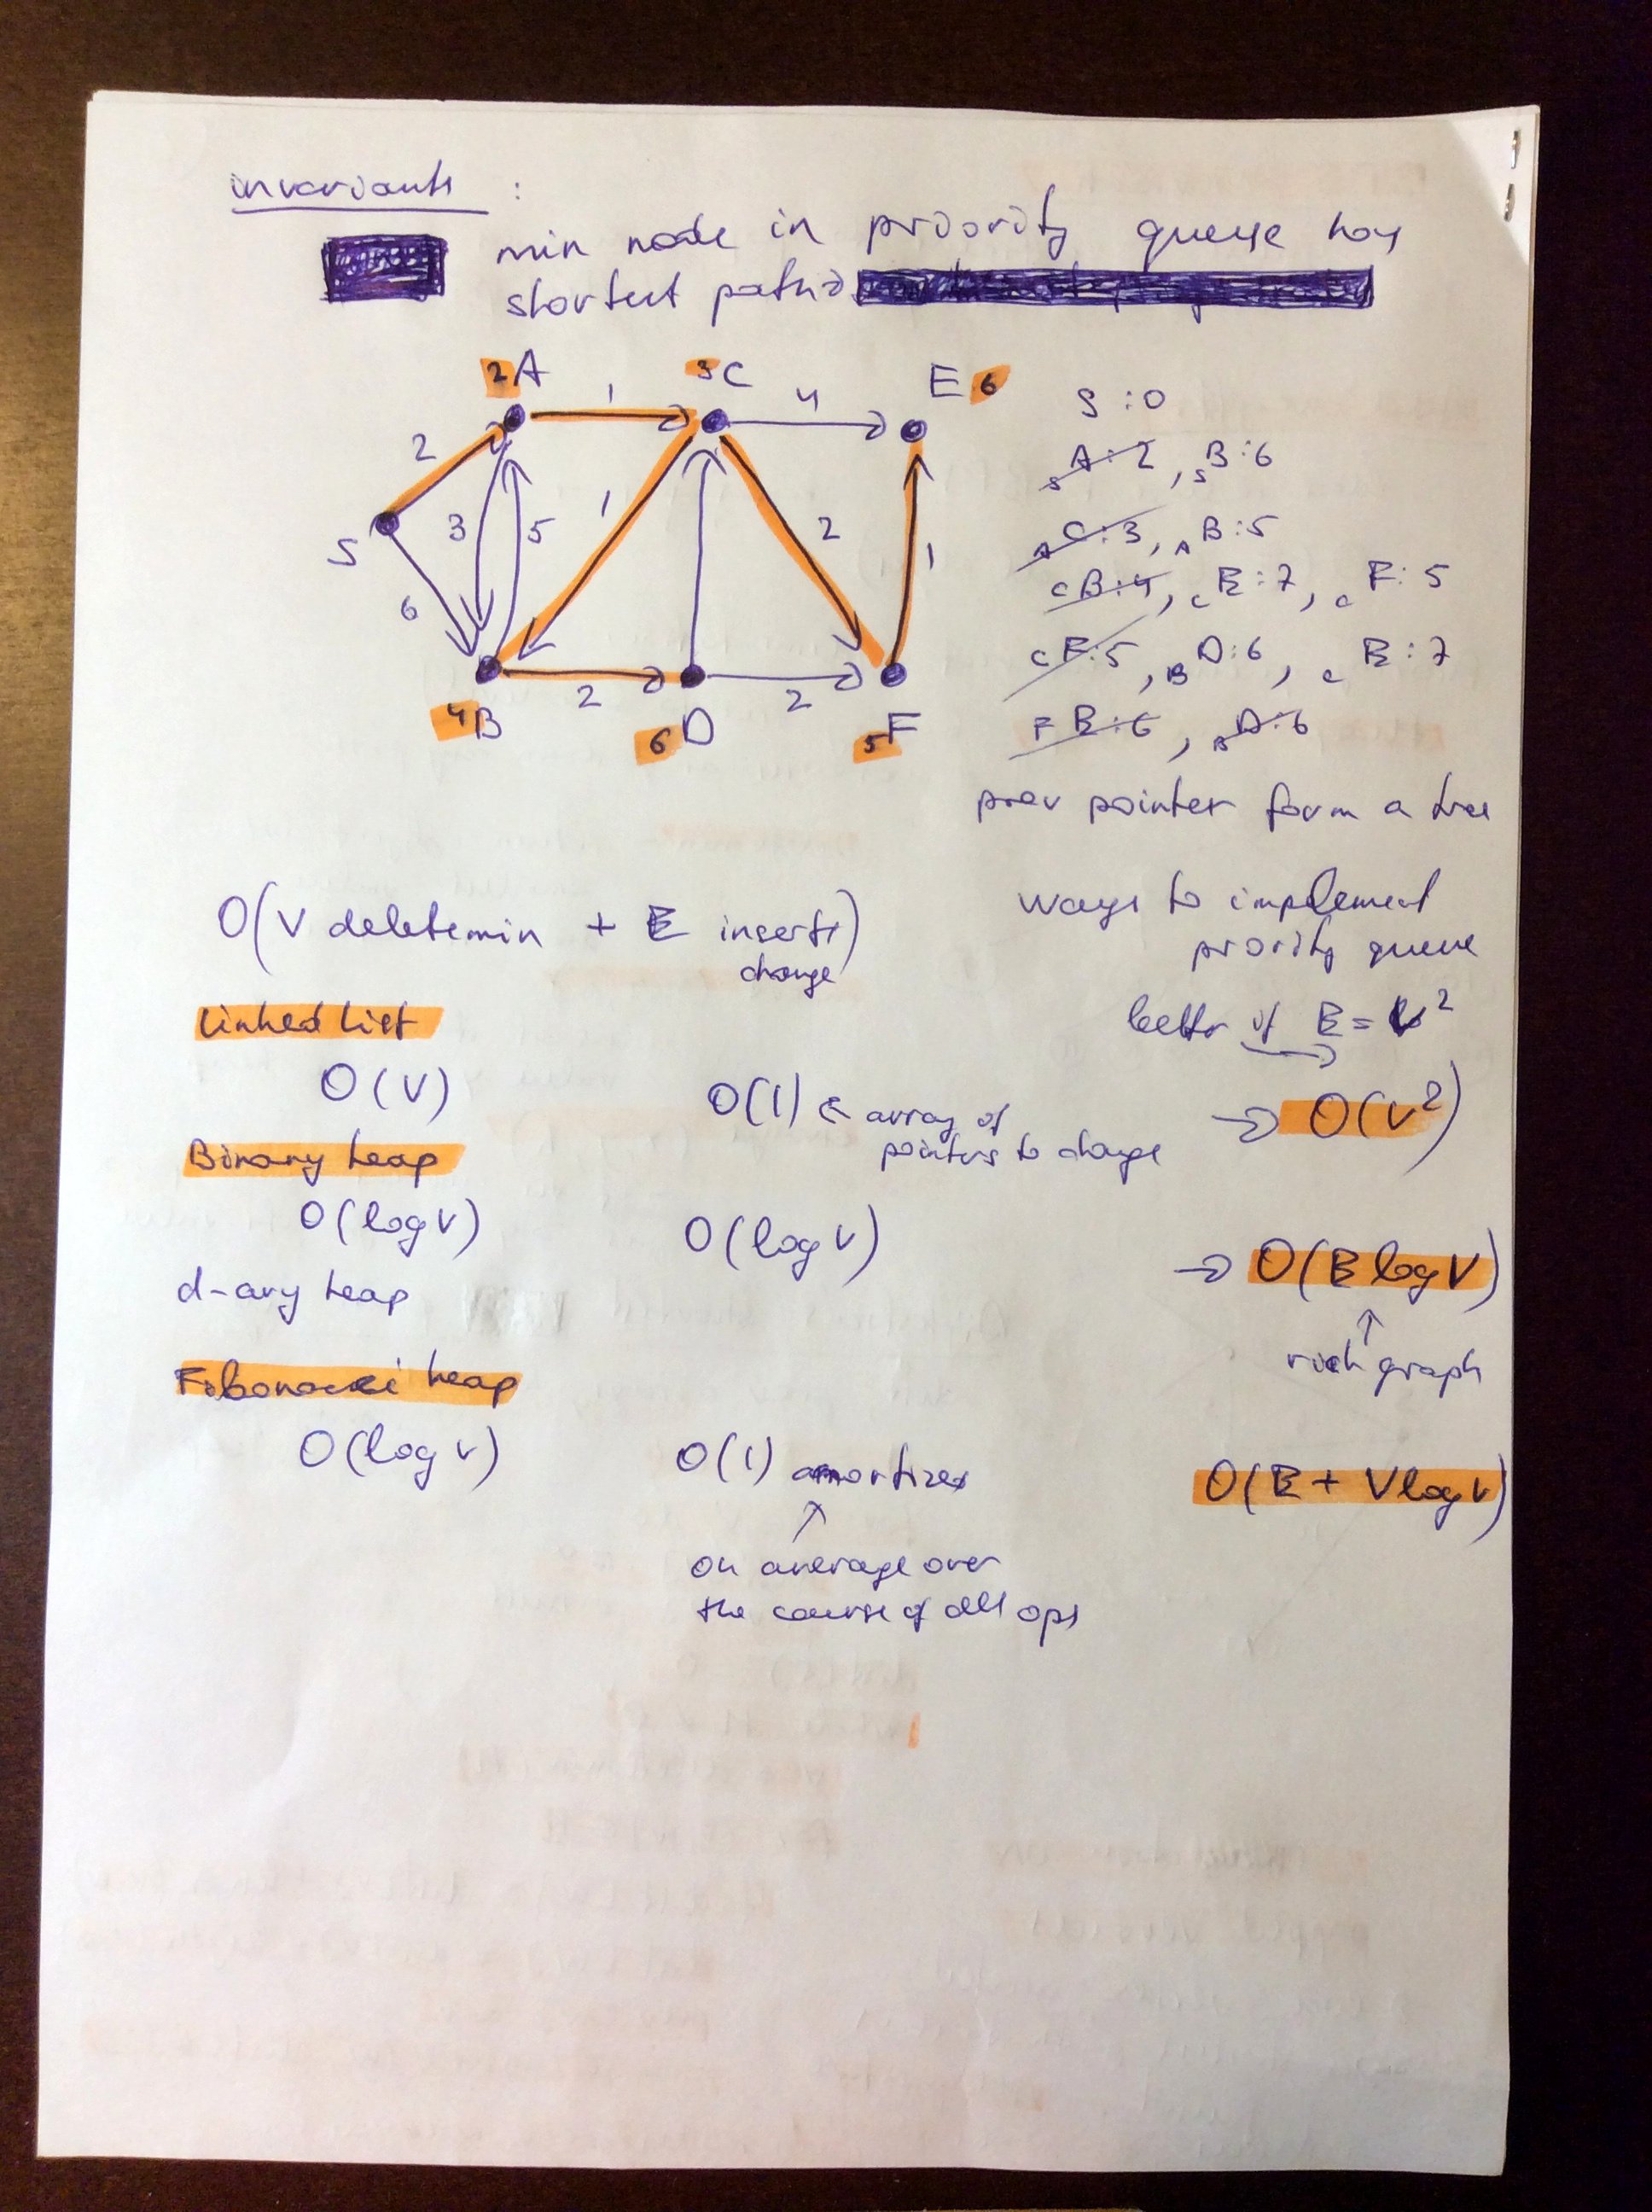 invariants :
min node in priority queue has
shortest path
2 A 1 3 C 4 E 6
2
S
3 5 1 2 1
6
2 2
4 B 6 D 5 F
S : 0
S A : 2 , S B : 6
A C : 3 , A B : 5
C B : 4 , C E : 7 , C F : 5
C F : 5 , B D : 6 , C E : 7
F E : 6 , B D : 6
prev pointer form a tree
O(V deletemin + E inserts)
change
ways to implement
priority queue
Linked List
better if E = V²
O(V) O(1) ← array of
pointers to change
→ O(V²)
Binary heap
O(log V) O(log V) → O(E log V)
↑
rich graph
d-ary heap
Fibonacci heap
O(log V) O(1) amortized O(E + V log V)
↑
on average over
the course of all ops